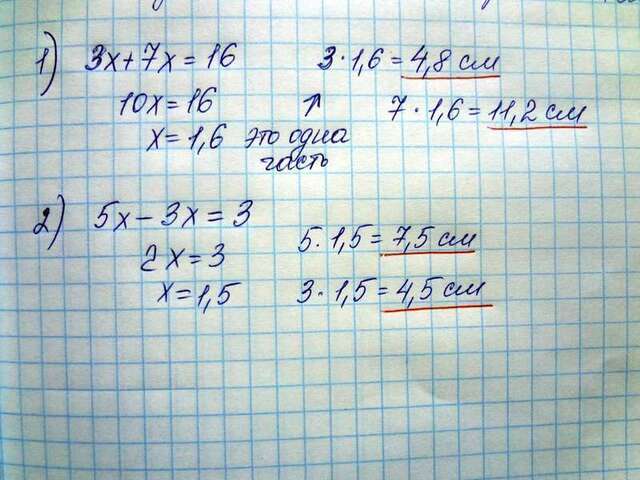 1) 3x+7x=16 3·1,6=4,8 см
10x=16 7·1,6=11,2 см
x=1,6 это одна
часть
2) 5x-3x=3
2x=3 5·1,5=7,5 см
x=1,5 3·1,5=4,5 см